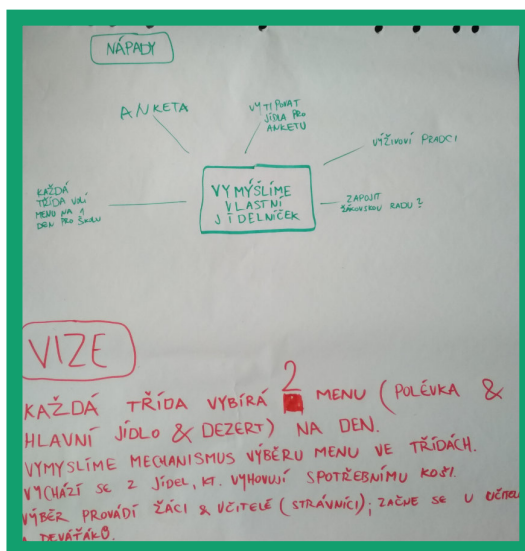 NÁPADY
ANKETA
VYTIPOVAT
JÍDLA PRO
ANKETU
VÝŽIVOVÍ PRADCI
KAŽDÁ
TŘÍDA VOLÍ
MENU NA 1
DEN PRO ŠKOLU
VYMÝŠLÍME
VLASTNÍ
JÍDELNÍČEK
ZAPOJIT
ŽÁKOVSKOU RADU?
VIZE
KAŽDÁ TŘÍDA VYBÍRÁ 2 MENU (POLÉVKA &
HLAVNÍ JÍDLO & DEZERT) NA DEN.
VYMYSLÍME MECHANISMUS VÝBĚRU MENU VE TŘÍDÁCH.
VYCHÁZÍ SE Z JÍDEL, KT. VYHOVUJÍ SPOTŘEBNÍMU KOŠI.
VÝBĚR PROVÁDÍ ŽÁCI & UČITELÉ (STRÁVNÍCI); ZAČNE SE U UČITELŮ
A DEVÁŤÁKŮ.